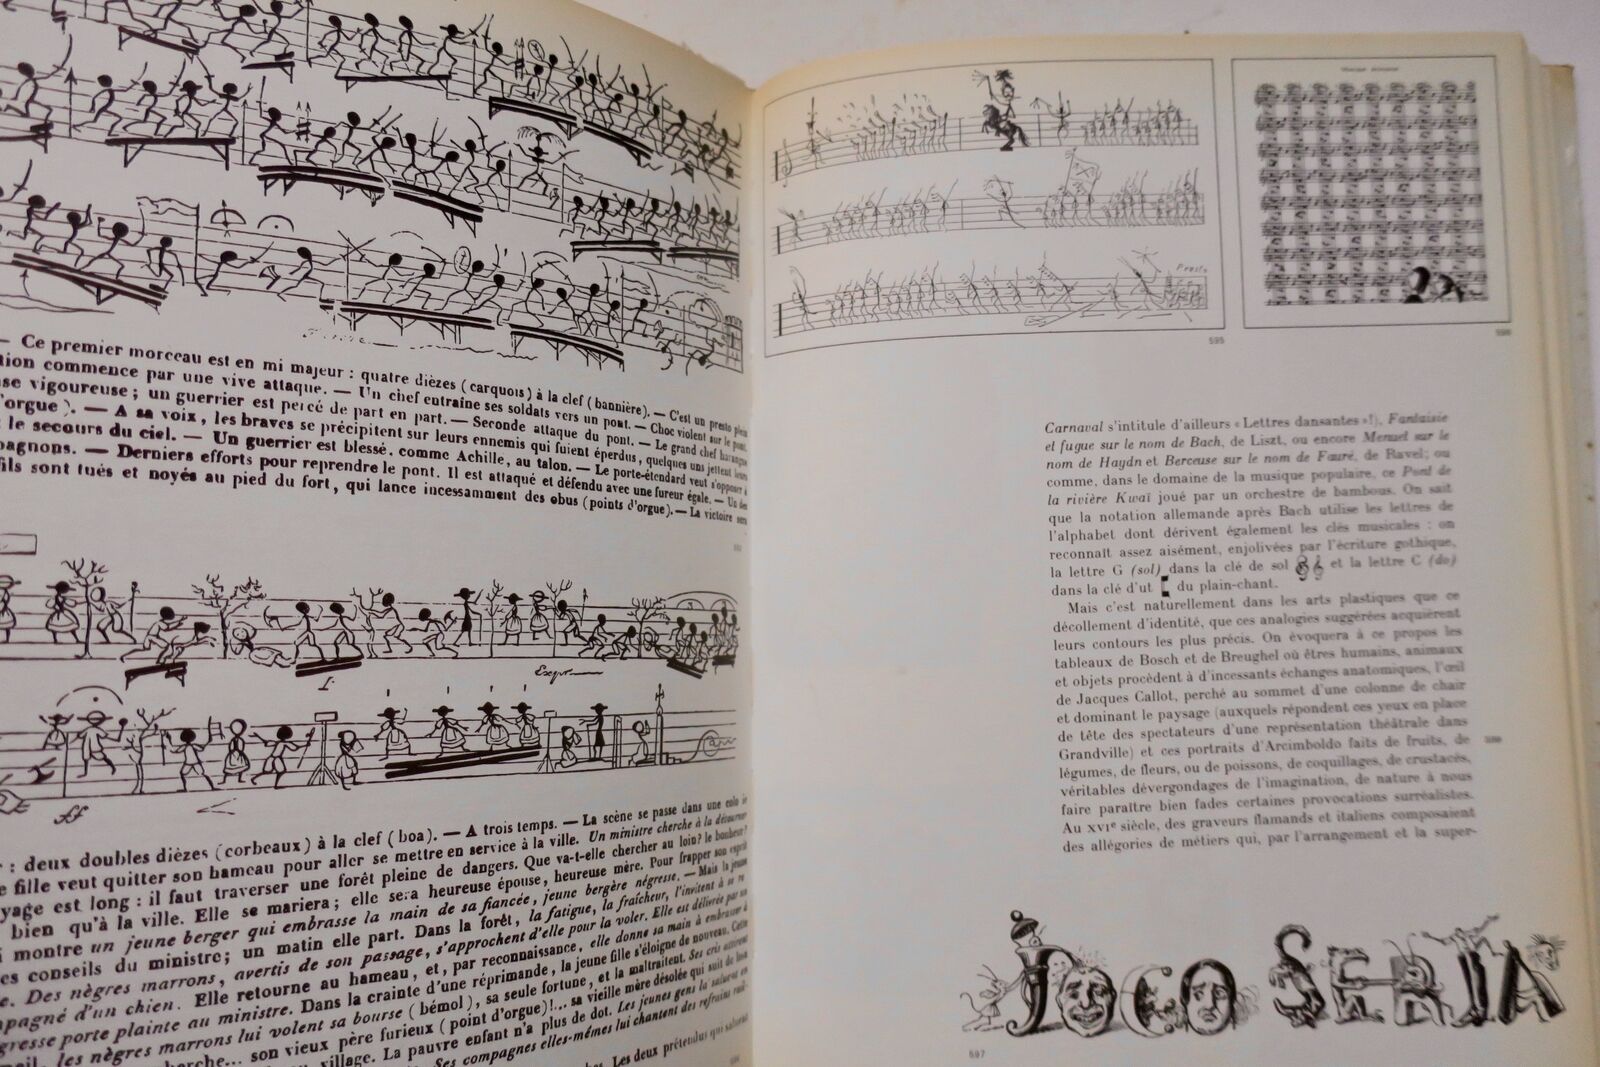 — Ce premier morceau est en mi majeur : quatre dièzes (carquois) à la clef (bannière). — C'est un presto plein
tion commence par une vive attaque. — Un chef entraîne ses soldats vers un pont. — Choc violent sur le pont.
se vigoureuse ; un guerrier est percé de part en part. — Seconde attaque du pont. — Le grand chef harangue
'orgue). — A sa voix, les braves se précipitent sur leurs ennemis qui fuient éperdus, quelques uns jettent leurs
le secours du ciel. — Un guerrier est blessé, comme Achille, au talon. — Le porte-étendard veut s'opposer à
pagnons. — Derniers efforts pour reprendre le pont. Il est attaqué et défendu avec une fureur égale. — Un des
fils sont tués et noyés au pied du fort, qui lance incessamment des obus (points d'orgue). — La victoire sera
ff
: deux doubles dièzes (corbeaux) à la clef (boa). — A trois temps. — La scène se passe dans une colo
e fille veut quitter son hameau pour aller se mettre en service à la ville. Un ministre cherche à la détourner
yage est long : il faut traverser une forêt pleine de dangers. Que va-t-elle chercher au loin? le bonheur?
bien qu'à la ville. Elle se mariera ; elle sera heureuse épouse, heureuse mère. Pour frapper son esprit
montre un jeune berger qui embrasse la main de sa fiancée, jeune bergère négresse. — Mais la jeune
es conseils du ministre ; un matin elle part. Dans la forêt, la fatigue, la fraîcheur, l'invitent à se
e. Des nègres marrons, avertis de son passage, s'approchent d'elle pour la voler. Elle est délivrée par un
mpagné d'un chien. Elle retourne au hameau, et, par reconnaissance, elle donne sa main à embrasser à
gresse porte plainte au ministre. Dans la crainte d'une réprimande, la jeune fille s'éloigne de nouveau. Cette
les nègres marrons lui volent sa bourse (bémol), sa seule fortune, et la maltraitent. Ses cris attirent
son vieux père furieux (point d'orgue)!... sa vieille mère désolée qui suit de loin
village. La pauvre enfant n'a plus de dot. Les jeunes gens la saluent en
Ses compagnes elles-mêmes lui chantent des refrains
Les deux prétendus qui
Presto
595
596
Carnaval s'intitule d'ailleurs « Lettres dansantes »!), Fantaisie
et fugue sur le nom de Bach, de Liszt, ou encore Menuet sur le
nom de Haydn et Berceuse sur le nom de Fauré, de Ravel ; ou
comme, dans le domaine de la musique populaire, ce Pont de
la rivière Kwaï joué par un orchestre de bambous. On sait
que la notation allemande après Bach utilise les lettres de
l'alphabet dont dérivent également les clés musicales : on
reconnaît assez aisément, enjolivées par l'écriture gothique,
la lettre G (sol) dans la clé de sol et la lettre C (do)
dans la clé d'ut du plain-chant.
Mais c'est naturellement dans les arts plastiques que ce
décollement d'identité, que ces analogies suggérées acquièrent
leurs contours les plus précis. On évoquera à ce propos les
tableaux de Bosch et de Breughel où êtres humains, animaux
et objets procèdent à d'incessants échanges anatomiques, l'œil
de Jacques Callot, perché au sommet d'une colonne de chair
et dominant le paysage (auxquels répondent ces yeux en place
de tête des spectateurs d'une représentation théâtrale dans
Grandville) et ces portraits d'Arcimboldo faits de fruits, de
légumes, de fleurs, ou de poissons, de coquillages, de crustacés,
véritables dévergondages de l'imagination, de nature à nous
faire paraître bien fades certaines provocations surréalistes.
Au XVIe siècle, des graveurs flamands et italiens composaient
des allégories de métiers qui, par l'arrangement et la super-
JOCO SERIA
597